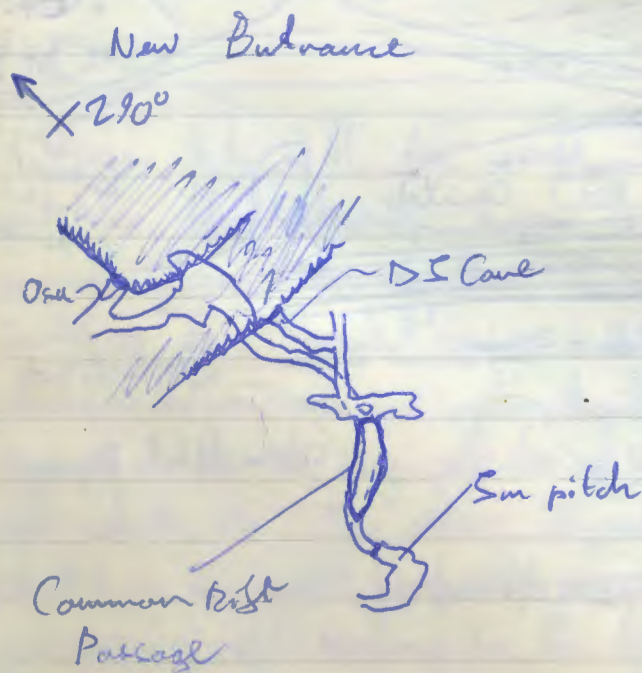 New Entrance
290°
DS Cave
5m pitch
Common Rift
Passage